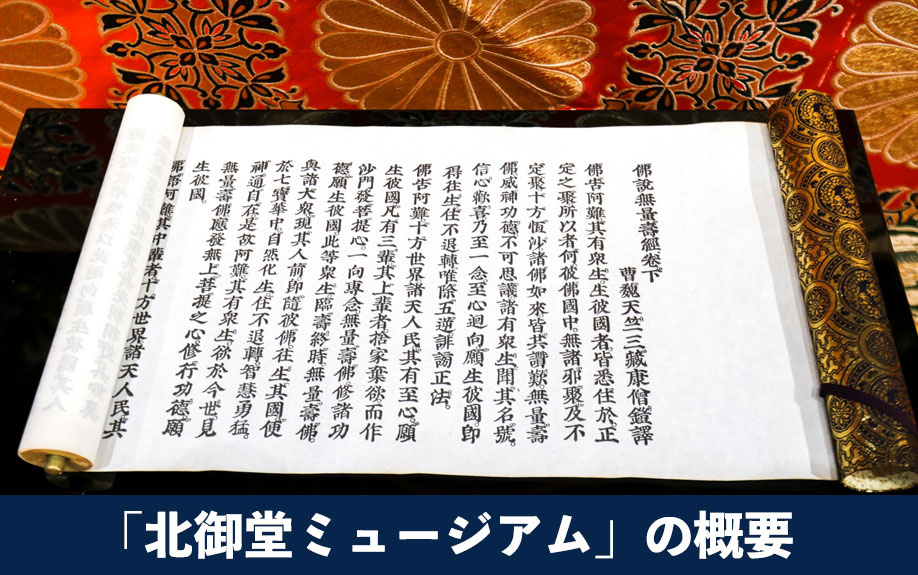 佛說無量壽經卷下
曹魏天竺三藏康僧鎧譯
佛告阿難其有衆生生彼國者皆悉住於正
定之聚所以者何彼佛國中無諸邪聚及不
定聚十方恆沙諸佛如來皆共讚歎無量壽
佛威神功德不可思議諸有衆生聞其名號
信心歡喜乃至一念至心迴向願生彼國卽
得往生住不退轉唯除五逆誹謗正法。
佛告阿難十方世界諸天人民其有至心願
生彼國凡有三輩其上輩者捨家棄欲而作
沙門發菩提心一向專念無量壽佛修諸功
德願生彼國此等衆生臨壽終時無量壽佛
與諸大衆現其人前卽隨彼佛往生其國便
於七寶華中自然化生住不退轉智慧勇猛
神通自在是故阿難其有衆生欲於今世見
無量壽佛應發無上菩提之心修行功德願
生彼國。
佛語阿難其中輩者十方世界諸天人民其
「北御堂ミュージアム」の概要